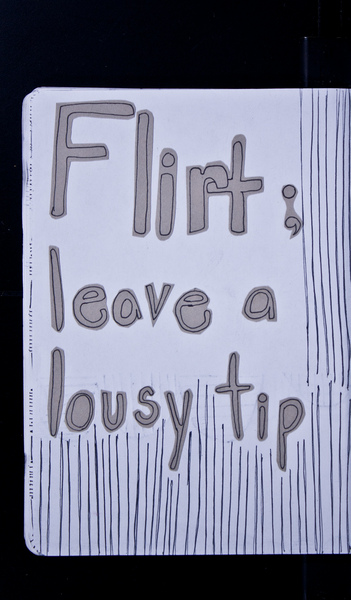 Flirt;
leave a
lousy tip